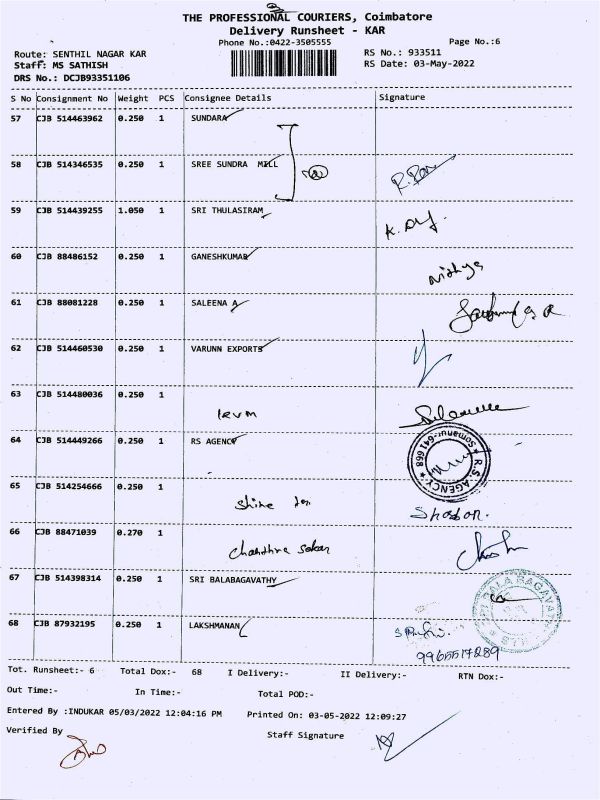 THE PROFESSIONAL COURIERS, Coimbatore
Delivery Runsheet - KAR
Phone No.:0422-3505555
Page No.:6
Route: SENTHIL NAGAR KAR
RS No.: 933511
Staff: MS SATHISH
RS Date: 03-May-2022
DRS No.: DCJB93351106
S No Consignment No Weight PCS Consignee Details Signature
57 CJB 514463962 0.250 1 SUNDARA
58 CJB 514346535 0.250 1 SREE SUNDRA MILL
59 CJB 514439255 1.050 1 SRI THULASIRAM
60 CJB 88486152 0.250 1 GANESHKUMAR
Nithya
61 CJB 88081228 0.250 1 SALEENA A
62 CJB 514460530 0.250 1 VARUNN EXPORTS
63 CJB 514480036 0.250 1
64 CJB 514449266 0.250 1 RS AGENCY
R.S. AGENCY
Somanur-641 668
65 CJB 514254666 0.250 1
Shine
66 CJB 88471039 0.270 1
Chandhra
67 CJB 514398314 0.250 1 SRI BALABAGAVATHY
68 CJB 87932195 0.250 1 LAKSHMANAN
9965517289
Tot. Runsheet:- 6 Total Dox:- 68 I Delivery:- II Delivery:- RTN Dox:-
Out Time:- In Time:- Total POD:-
Entered By :INDUKAR 05/03/2022 12:04:16 PM Printed On: 03-05-2022 12:09:27
Verified By Staff Signature